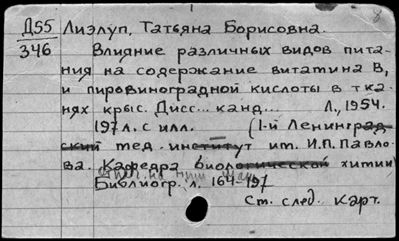 8
Д55 Лиэлуп, Татьяна Борисовна.
346 Влияние различных видов пита-
ния на содержание витамина В,
и пировиноградной кислоты в тка-
нях крыс. Дисс... канд... Л., 1954.
197 л. с илл. (1-й Ленинград-
ский мед. институт им. И.П. Павло-
ва. Кафедра биологической химии)
Библиогр. л. 164-197
См. след. карт.